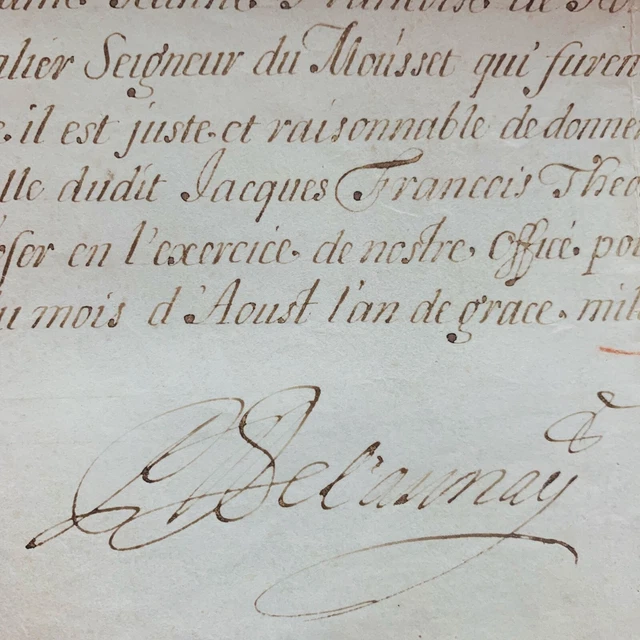 Jeanne Francoise de
alier Seigneur du Mousset qui furen
e. il est juste et raisonnable de donne
lle dudit Jacques Francois Theo
oser en l'exercice de nostre Office pou
u mois d'Aoust l'an de grace mil
Delaunay